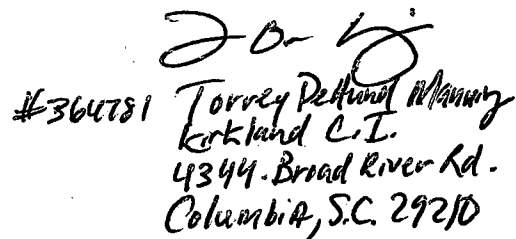 #364781 Torrey Manning
Kirkland C.I.
4344. Broad River Rd.
Columbia, S.C. 29210